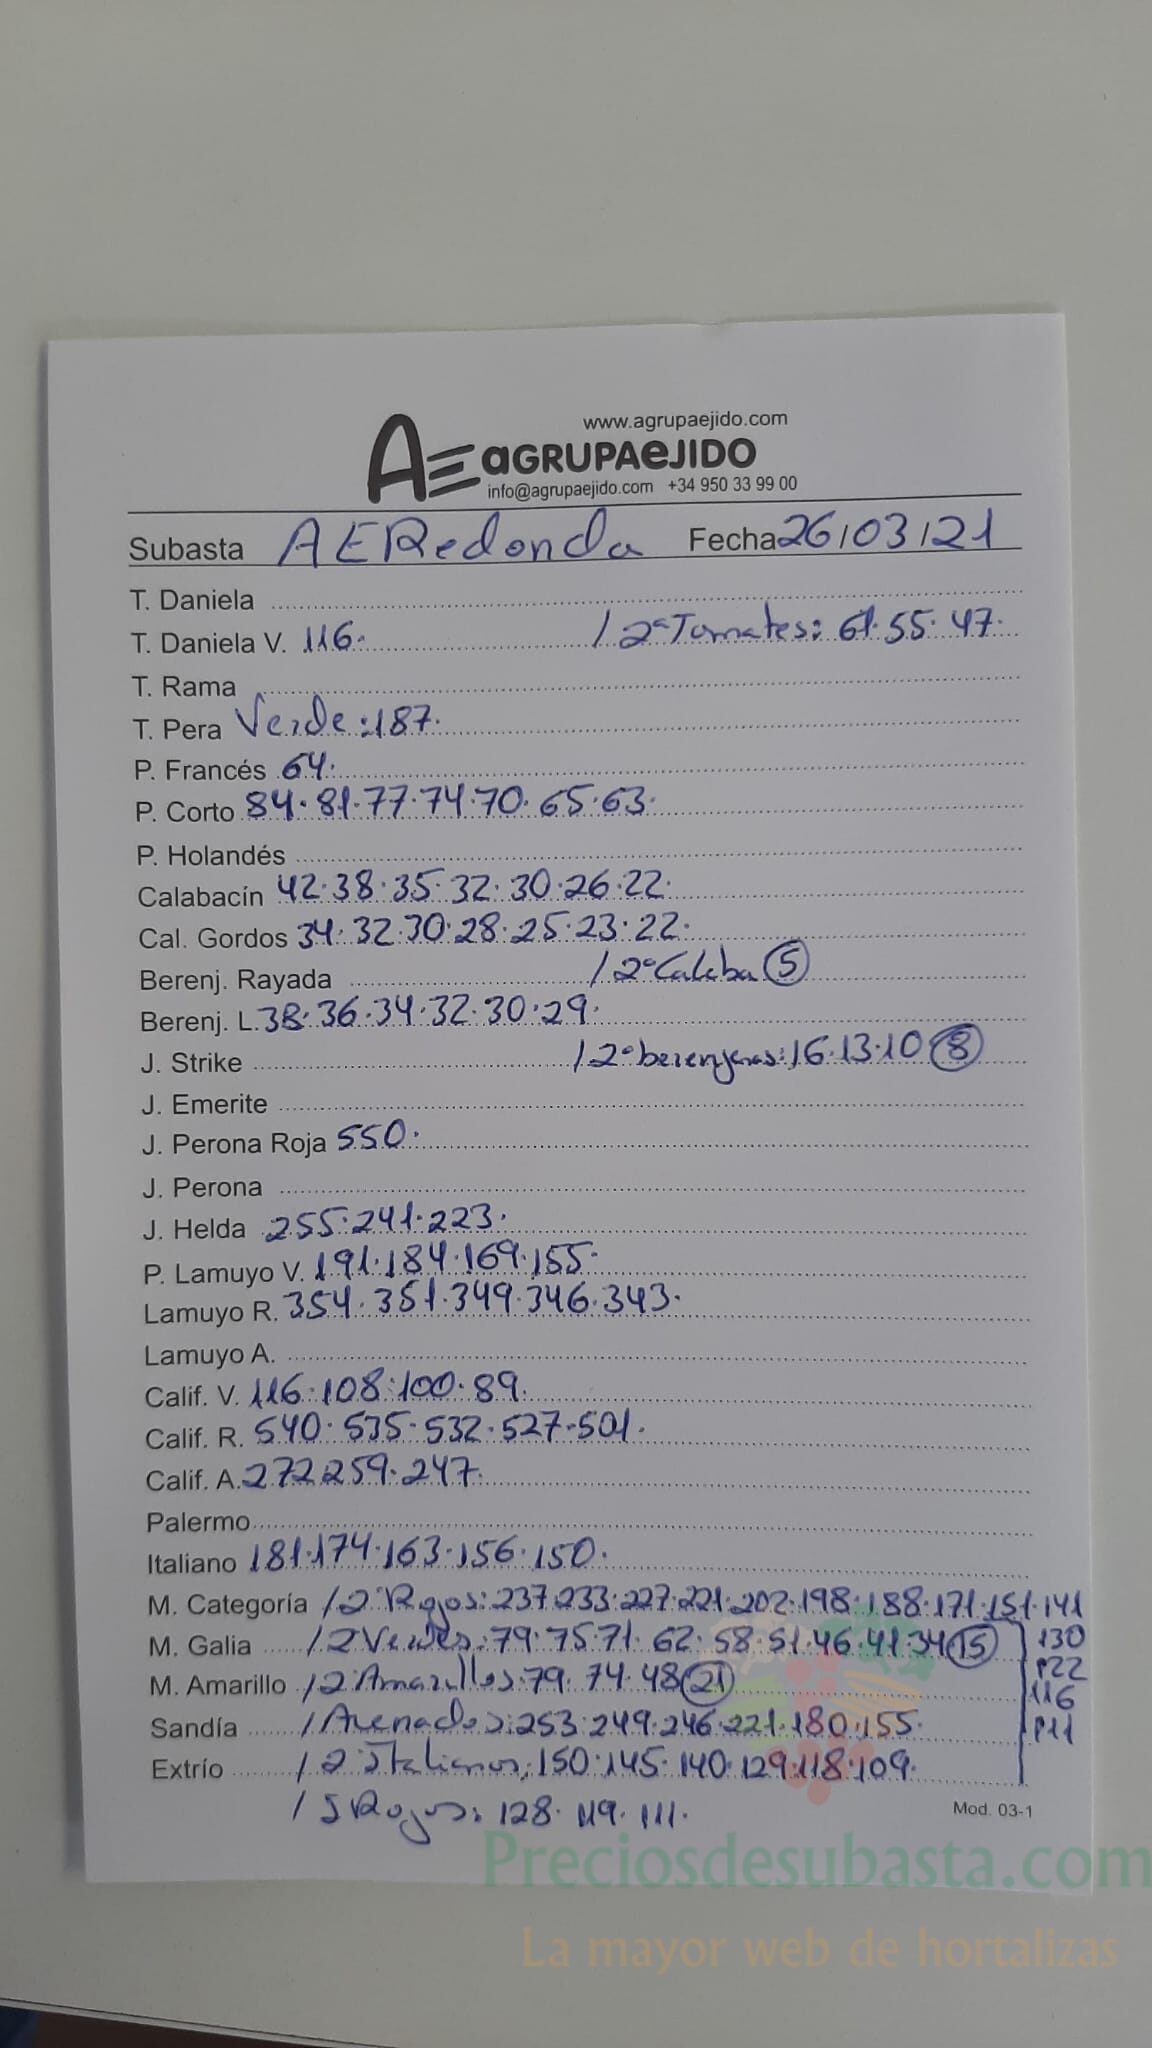 www.agrupaejido.com
AE aGRUPAeJIDO
info@agrupaejido.com +34 950 33 99 00
Subasta AERedonda Fecha 26/03/21
T. Daniela
T. Daniela V. 116. / 2ª Tomates: 61.55.47.
T. Rama
T. Pera Verde: 187.
P. Francés 64.
P. Corto 84.81.77.74.70.65.63.
P. Holandés
Calabacín 42.38.35.32.30.26.22.
Cal. Gordos 34.32.30.28.25.23.22.
Berenj. Rayada / 2ª Calaba 5
Berenj. L. 38.36.34.32.30.29.
J. Strike / 2ª berenjenas: 16.13.10 8
J. Emerite
J. Perona Roja 550.
J. Perona
J. Helda 255.241.223.
P. Lamuyo V. 191.184.169.155.
Lamuyo R. 354.351.349.346.343.
Lamuyo A.
Calif. V. 116.108.100.89.
Calif. R. 540.535.532.527.501.
Calif. A. 272.259.247.
Palermo
Italiano 181.174.163.156.150.
M. Categoría / 2ª Rojos: 237.233.227.221.202.198.188.171.151.141
M. Galia / 2 Verdes: 79.75.71.62.58.51.46.41.34 15 130
122
M. Amarillo / 2 Amarillos: 79.74.48 21 116
Sandía / Asenados: 253.249.246.221.180.155. 111
Extrío / 2 Italianos: 150.145.140.129.118.109.
/ Rojos: 128.119.111.
Mod. 03-1
Preciosdesubasta.com
La mayor web de hortalizas